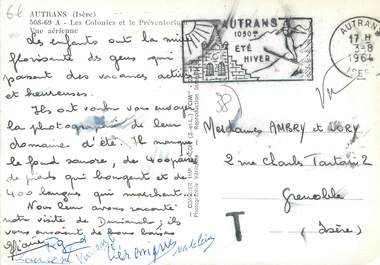 AUTRANS (Isère)
508-69 A - Les Colonies et le Préventorium
Vue aérienne
Les enfants ont la mine
florissante de gens qui
passent des vacances actives
et heureuses.
Ils ont voulu vous envoyer
la photographie de leur
domaine d'été. Il manque
le fond sonore, de 400 paires
de pieds qui bougent et de
400 langues qui marchent...
Nous leur avons raconté
notre visite de Dimanche ; ils
vous envoient de bons baisers
AUTRANS
1050m
ÉTÉ
HIVER
AUTRANS
17 H
3-8
1964
ISERE
Vu
38
COMBIER IMP. MACON (S.-et-L.) "CIM"
Mesdames AMBRY et
2 rue Charles
Grenoble
(Isère)
T